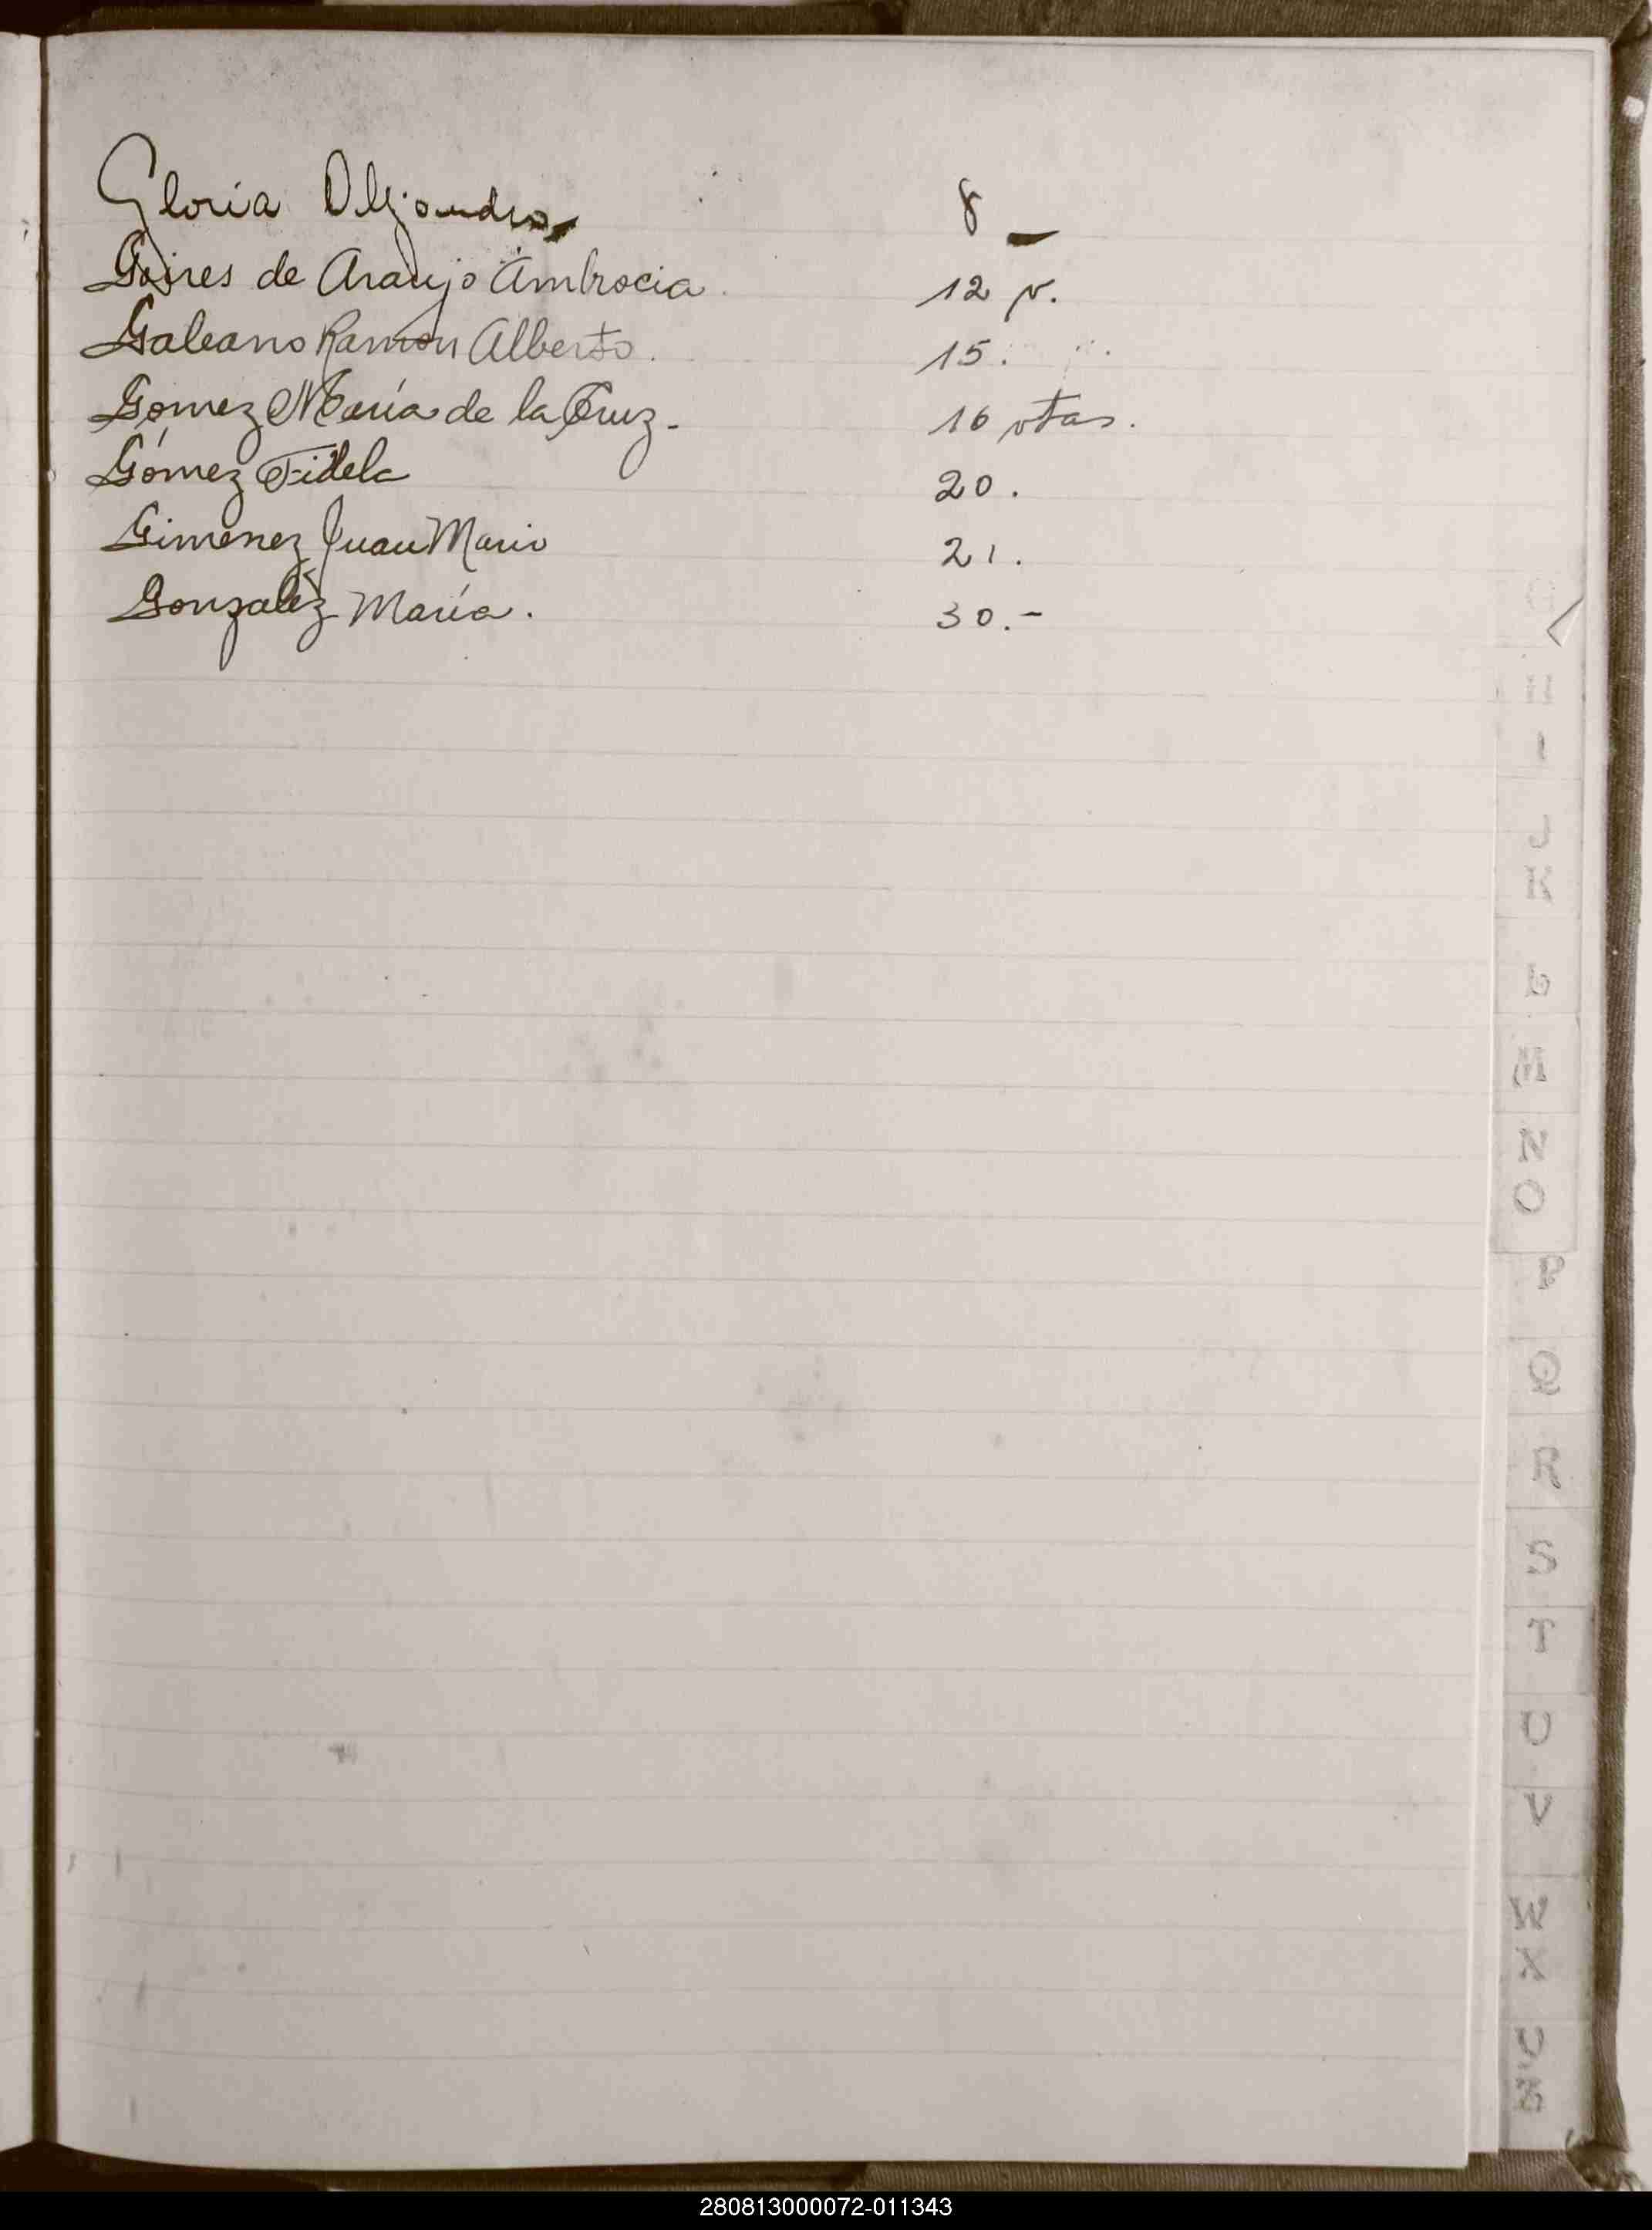 Gloria Alejandro 8 –
Goires de Araujo Ambrocia 12 v.
Galeano Ramon Alberto. 15.
Gomez María de la Cruz - 16 vtas.
Gómez Fidela 20.
Gimenez Juan Mario 21.
Gonzalez María. 30.-
I
J
K
L
M
N
O
P
Q
R
S
T
U
V
W
X
280813000072-011343